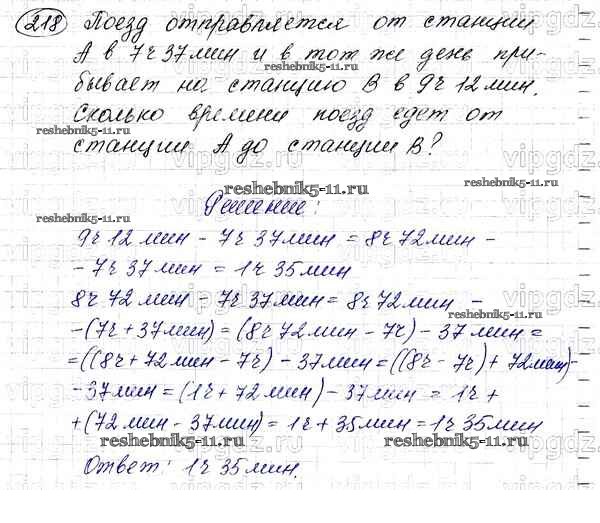 218 Поезд отправляется от станции
А в 7ч 37мин и в тот же день при-
бывает на станцию В в 9ч 12мин.
Сколько времени поезд едет от
reshebnik5-11.ru
станции А до станции В?
reshebnik5-11.ru
reshebnik5-11.ru
Решение:
reshebnik5-11.ru
9ч 12мин - 7ч 37мин = 8ч 72мин -
- 7ч 37мин = 1ч 35мин
8ч 72мин - 7ч 37мин = 8ч 72мин -
reshebnik5-11.ru
-(7ч + 37мин) = (8ч 72мин - 7ч) - 37мин =
=((8ч + 72мин - 7ч) - 37мин = ((8ч - 7ч) + 72мин)-
-37мин = (1ч + 72мин) - 37мин = 1ч +
+(72мин - 37мин) = 1ч + 35мин = 1ч 35мин
reshebnik5-11.ru
reshebnik5-11.ru
Ответ: 1ч 35мин.